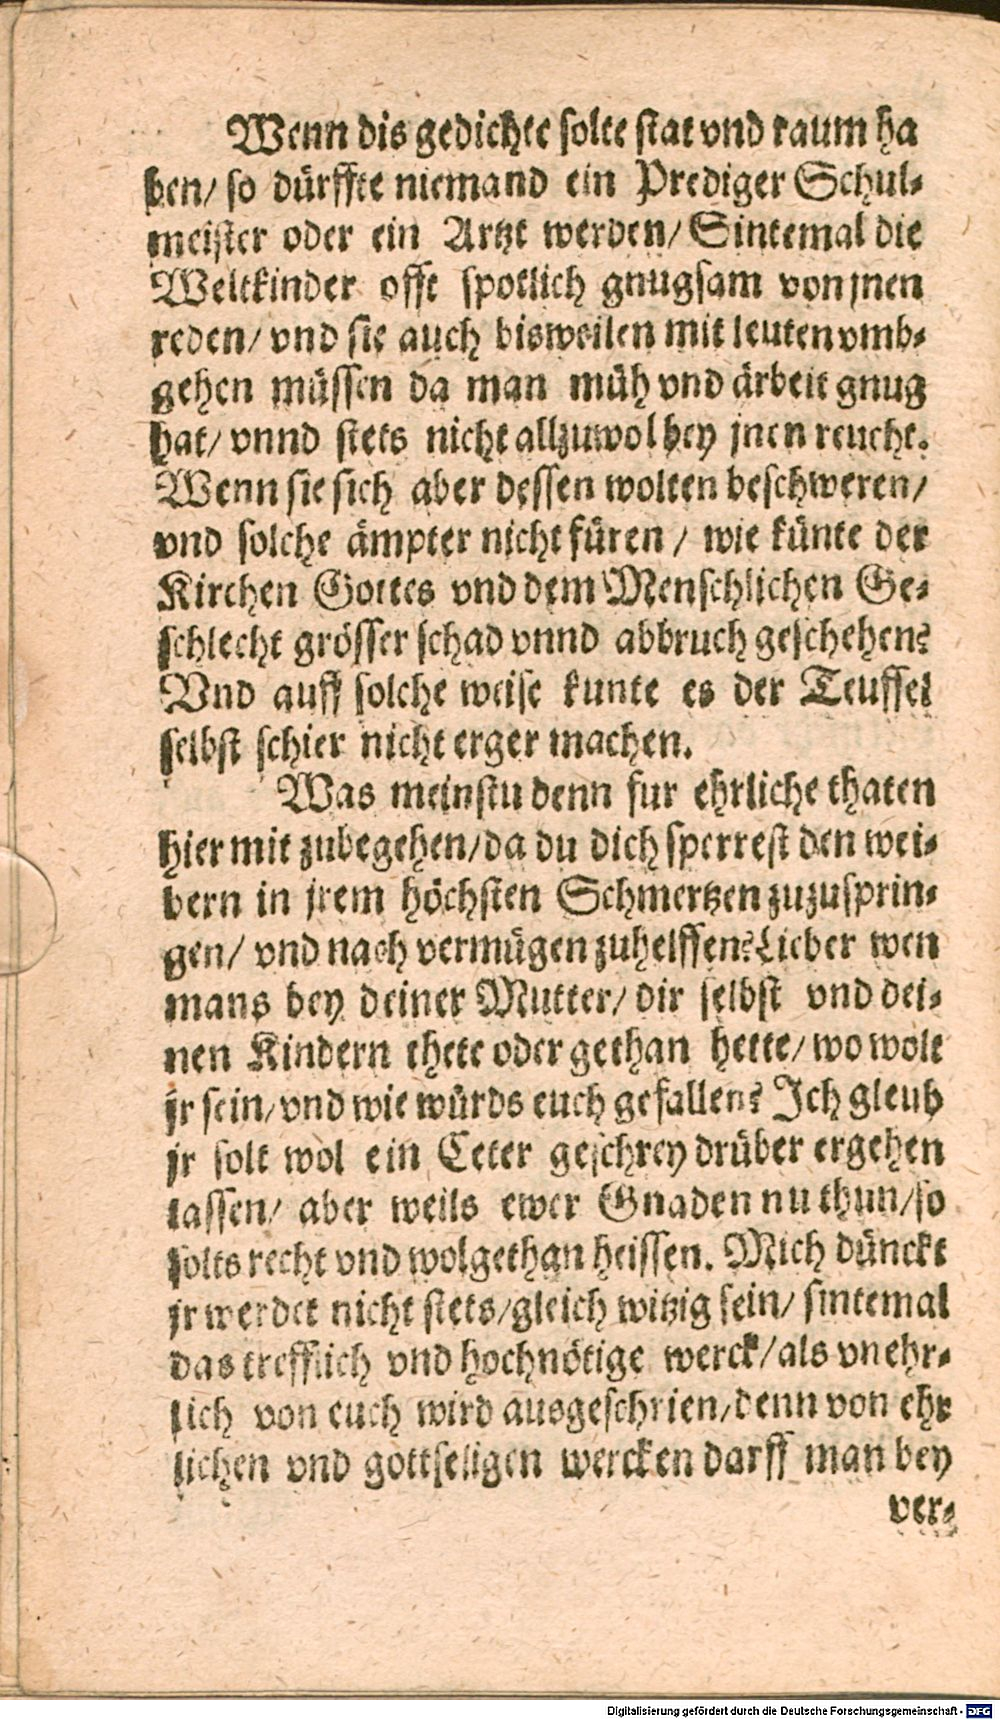 Wenn dis gedichte solte stat vnd raum ha
ben/ so dürffte niemand ein Prediger Schul-
meister oder ein Artzt werden/ Sintemal die
Weltkinder offt spotlich gnugsam von jnen
reden/ vnd sie auch bisweilen mit leuten vmb-
gehen müssen da man müh vnd ärbeit gnug
hat/ vnnd stets nicht allzuwol bey jnen reucht.
Wenn sie sich aber dessen wolten beschweren/
vnd solche ämpter nicht füren / wie künte der
Kirchen Gottes vnd dem Menschlichen Ge-
schlecht grösser schad vnnd abbruch geschehen?
Vnd auff solche weise kunte es der Teuffel
selbst schier nicht erger machen.
Was meinstu denn fur ehrliche thaten
hier mit zubegehen/ da du dich sperrest den wei-
bern in jrem höchsten Schmertzen zuzusprin-
gen/ vnd nach vermügen zuhelffen? Lieber wen
mans bey deiner Mutter/ dir selbst vnd dei-
nen Kindern thete oder gethan hette/ wo wolt
jr sein/ vnd wie würds euch gefallen? Ich gleub
jr solt wol ein Ceter geschrey drüber ergehen
lassen/ aber weils ewer Gnaden nu thun/ so
solts recht vnd wolgethan heissen. Mich dünckt
jr werdet nicht stets/ gleich witzig sein/ sintemal
das trefflich vnd hochnötige werck/ als vnehr-
lich von euch wird ausgeschrien/ denn von ehr
lichen vnd gottseligen wercken darff man bey
ver-
Digitalisierung gefördert durch die Deutsche Forschungsgemeinschaft - DFG